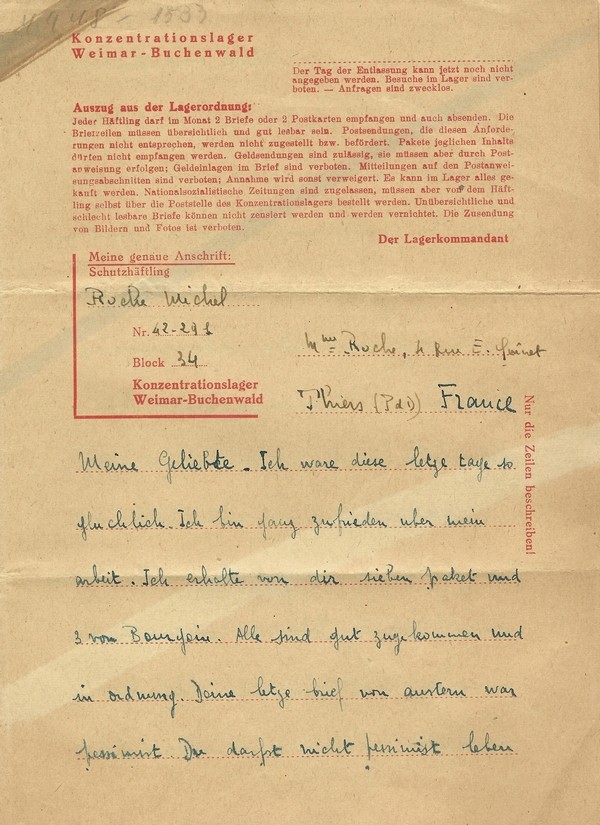 Konzentrationslager
Weimar-Buchenwald
Der Tag der Entlassung kann jetzt noch nicht
angegeben werden. Besuche im Lager sind ver-
boten. — Anfragen sind zwecklos.
Auszug aus der Lagerordnung:
Jeder Häftling darf im Monat 2 Briefe oder 2 Postkarten empfangen und auch absenden. Die
Briefzeilen müssen übersichtlich und gut lesbar sein. Postsendungen, die diesen Anforde-
rungen nicht entsprechen, werden nicht zugestellt bzw. befördert. Pakete jeglichen Inhalts
dürfen nicht empfangen werden. Geldsendungen sind zulässig, sie müssen aber durch Post-
anweisung erfolgen; Geldeinlagen im Brief sind verboten. Mitteilungen auf den Postanwei-
sungsabschnitten sind verboten; Annahme wird sonst verweigert. Es kann im Lager alles ge-
kauft werden. Nationalsozialistische Zeitungen sind zugelassen, müssen aber von dem Häft-
ling selbst über die Poststelle des Konzentrationslagers bestellt werden. Unübersichtliche und
schlecht lesbare Briefe können nicht zensiert werden und werden vernichtet. Die Zusendung
von Bildern und Fotos ist verboten.
Der Lagerkommandant
Meine genaue Anschrift:
Schutzhäftling
Roche Michel
Nr. 42-291
Block 34
Konzentrationslager
Weimar-Buchenwald
Mme Roche, 4 Rue E.
Thiers (PdD) France
Nur die Zeilen beschreiben!
Meine Geliebte. Ich ware diese letze tage so
gluchlich. Ich bin ganz zufrieden uber mein
arbeit. Ich erhalte von dir sieben paket und
3 von Bourgoin. Alle sind gut zugekommen und
in ordnung. Deine letze brief von austern war
pessimist Du darfst nicht pessimist leben